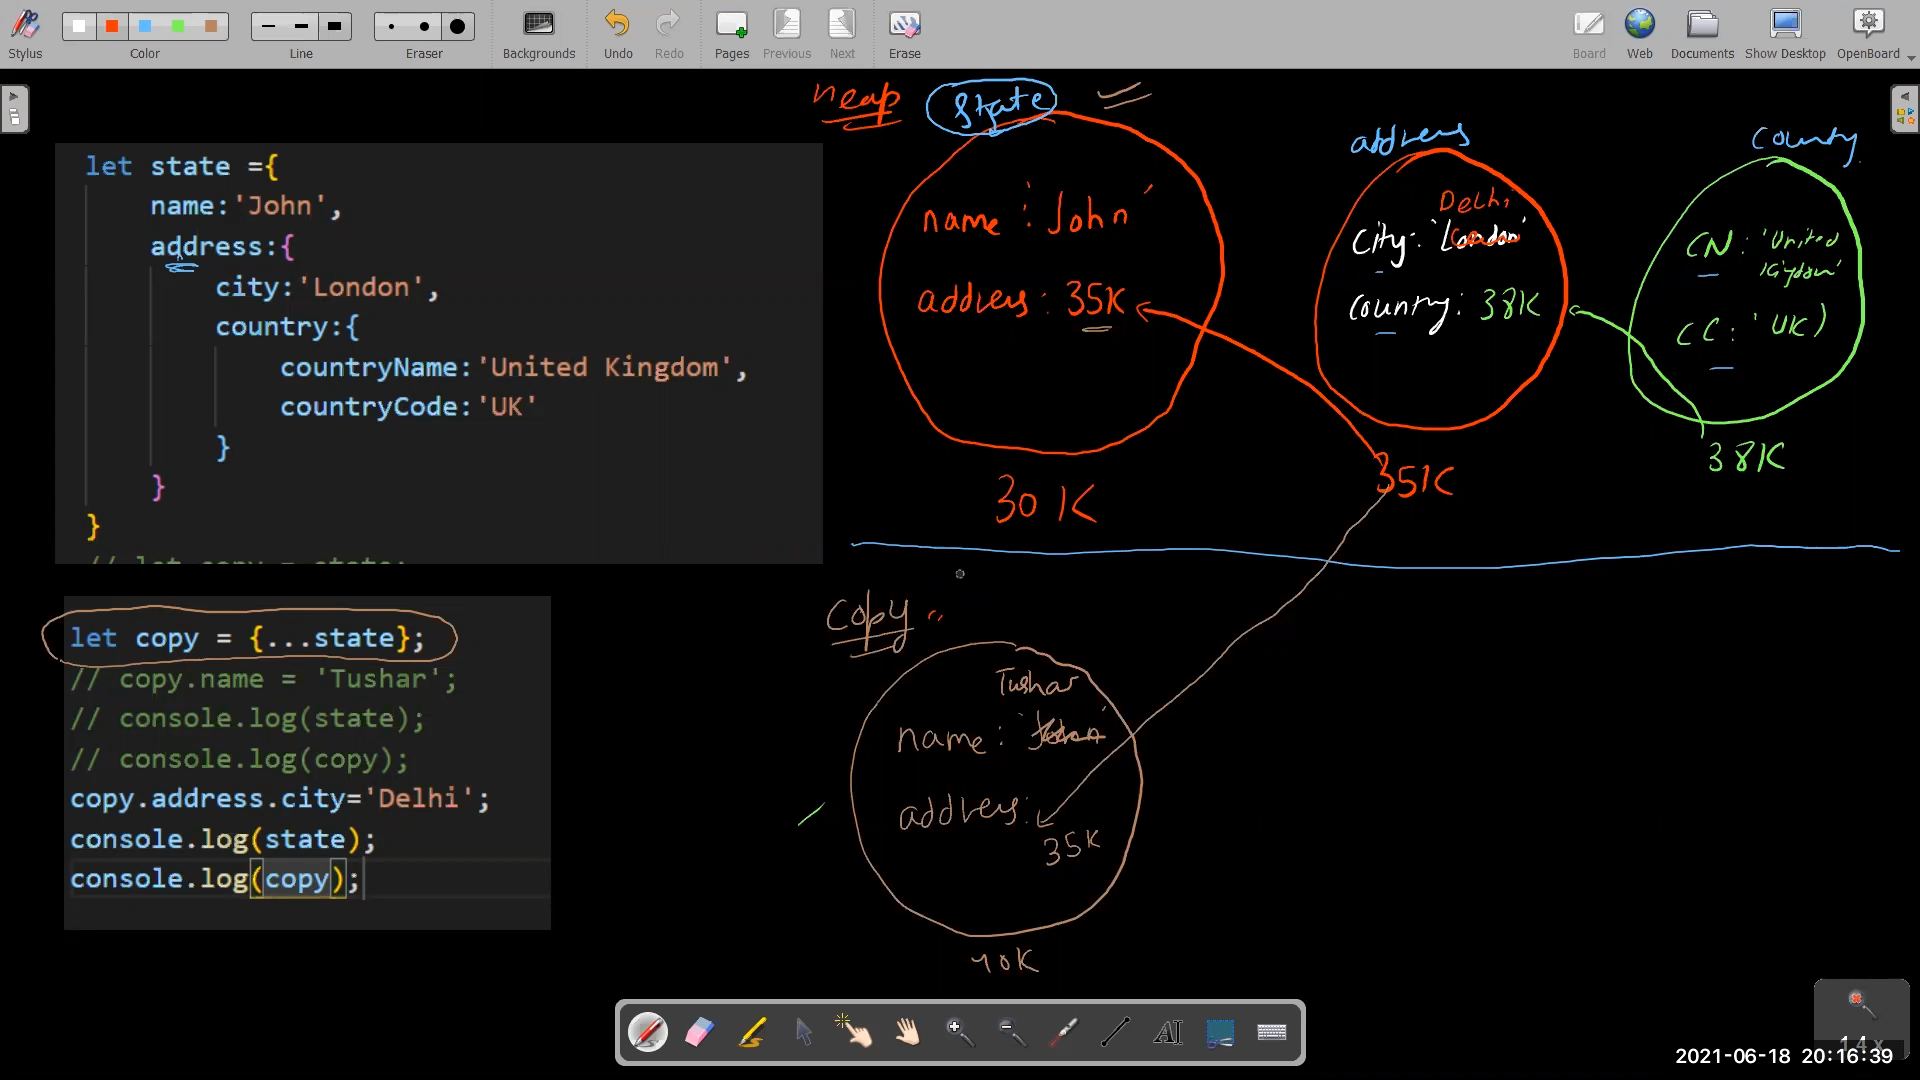 Stylus
Color
Line
Eraser
Backgrounds
Undo
Redo
Pages
Previous
Next
Erase
Board
Web
Documents
Show Desktop
OpenBoard
let state ={
name:'John',
address:{
city:'London',
country:{
countryName:'United Kingdom',
countryCode:'UK'
}
}
}
// let copy = state;
let copy = {...state};
// copy.name = 'Tushar';
// console.log(state);
// console.log(copy);
copy.address.city='Delhi';
console.log(state);
console.log(copy);
heap
state
name : 'John'
address : 35K
30K
address
Delhi
City: 'London'
Country: 38K
35K
County
CN : 'United
Kingdom'
CC : 'UK'
38K
Copy
Tushar
name : 'John'
address:
35K
40K
AI
1.4 x
2021-06-18 20:16:39